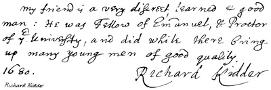 my friend is a very discreet learned & good
man: He was Fellow of Emanuel, & Proctor
of yᵉ University, and did while there bring
up many young men of good quality.
1680.
Richard Kidder
Richard Kidder